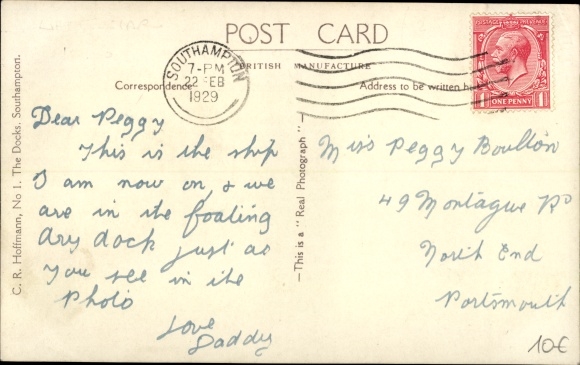 POST CARD
BRITISH MANUFACTURE
SOUTHAMPTON
7-PM
22 FEB
1929
POSTAGE REVENUE
ONE PENNY
1 1
Correspondence
Address to be written he
Dear Peggy
This is the ship
I am now on, & we
are in the foating
dry dock just as
you see in the
Photo
Love
Daddy
C. R. Hoffmann, No 1. The Docks. Southampton.
—This is a "Real Photograph"—
Miss Peggy Boulton
49 Montague Rd
North End
Portsmouth
10€